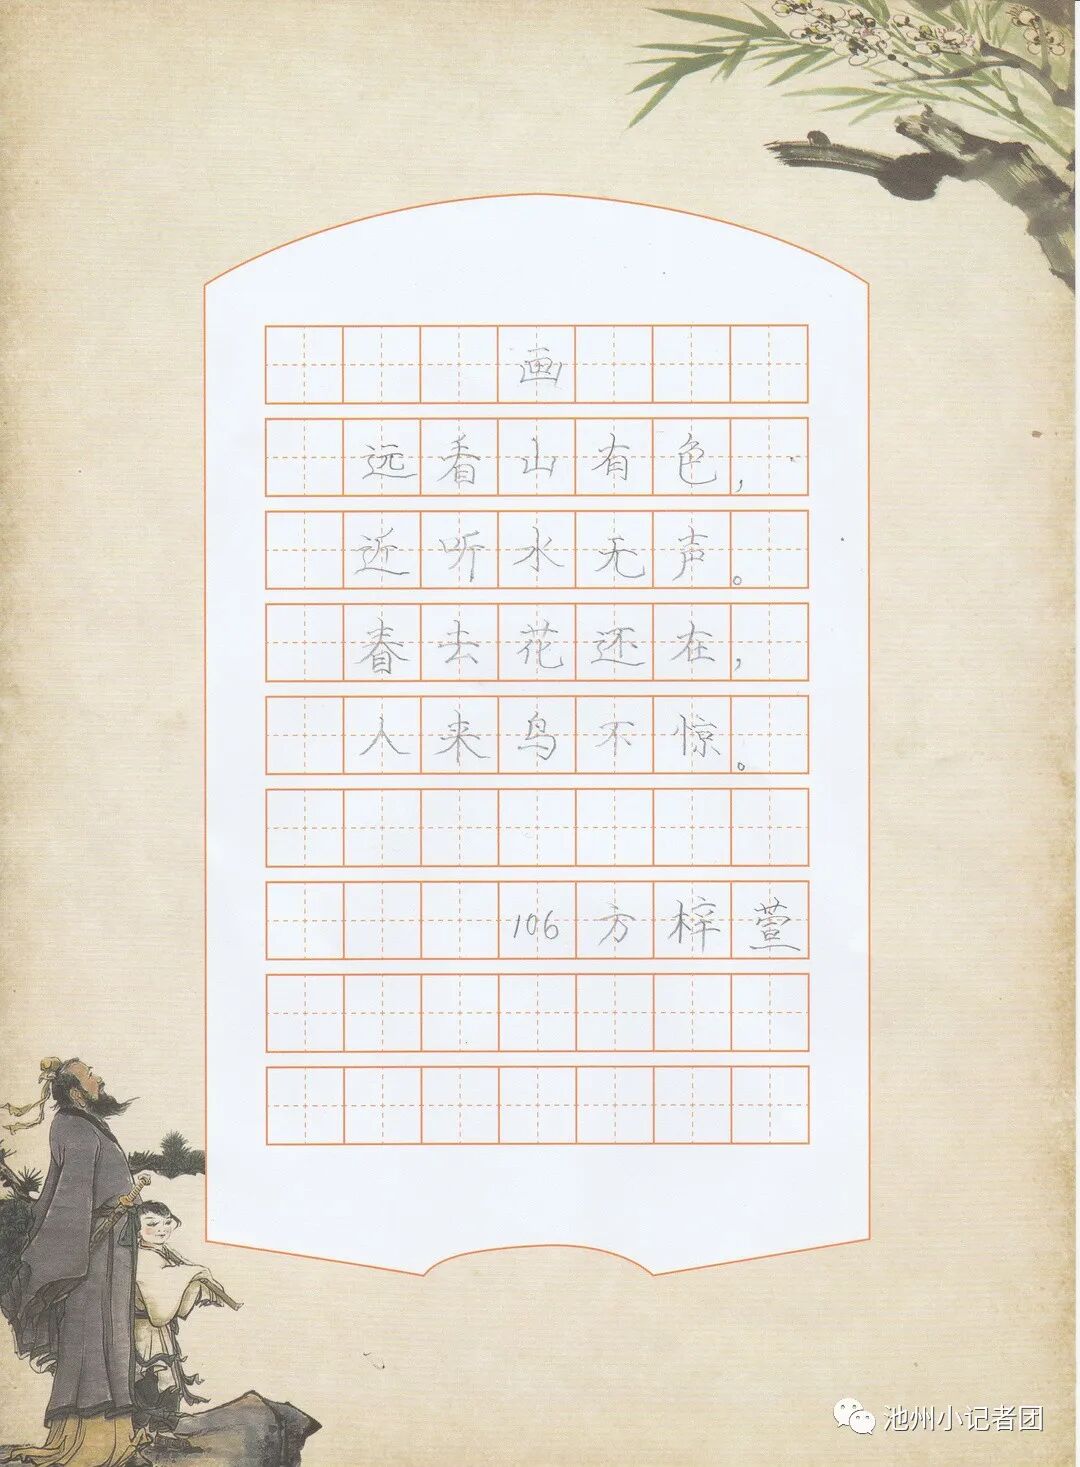 画
远看山有色，
近听水无声。
春去花还在，
人来鸟不惊。
106方梓萱
池州小记者团